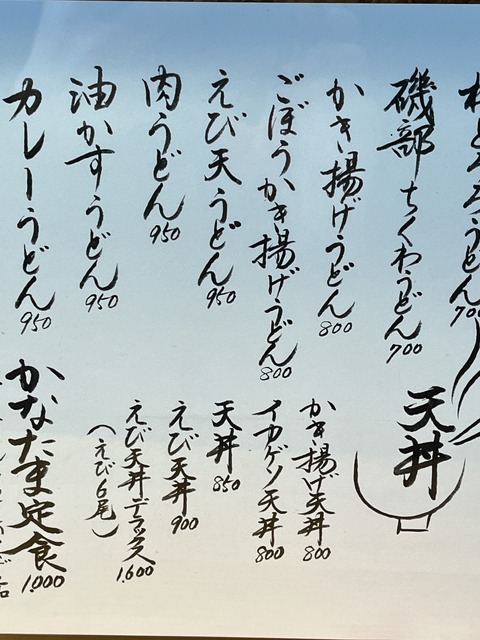 うどん
700
磯部ちくわうどん
700
かき揚げうどん
800
ごぼうかき揚げうどん
800
えび天うどん
950
肉うどん
950
油かすうどん
950
カレーうどん
950
天丼
かき揚げ天丼
800
イカゲソ天丼
800
天丼
850
えび天丼
900
えび天丼デラックス
1,600
（えび6尾）
かなたま定食
1,000